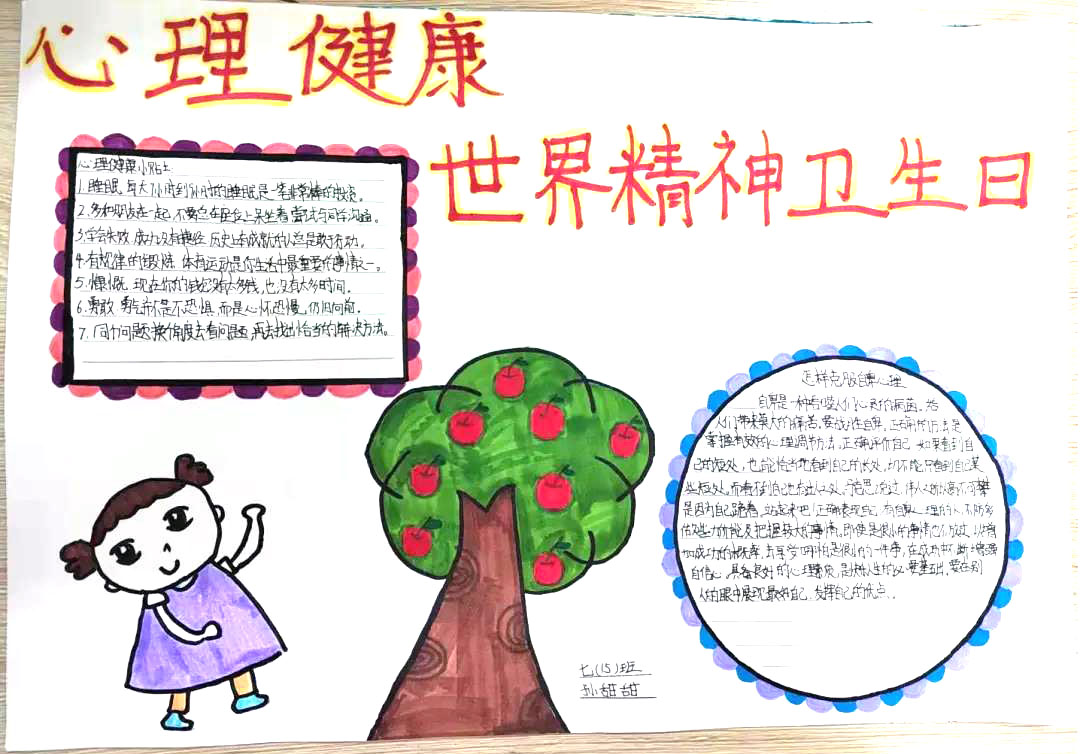 心理健康
世界精神卫生日
心理健康小贴士
1.睡眠,每天7小时到9小时的睡眠是一笔非常棒的投资。
2.多和朋友在一起,不要总在座位上呆坐着,尝试与同学沟通。
3.学会失败 成功没有捷径 历史上有成就的人总是敢于行动。
4.有规律的锻炼 体育运动是你生活中最重要的事情之一。
5.慷慨 现在你的钱包没有太多钱,也没有太多时间。
6.勇敢 勇气并不是不恐惧,而是心怀恐惧,仍旧向前。
7.同个问题换角度去看问题,再去找出恰当的解决方法。
怎样克服自卑心理
自卑是一种吞噬人们心灵的病菌。给
人们带来莫大的痛苦,要战胜自卑,正确的方法是
掌握有效的心理调节方法,正确评价自己 如果看到自
己的短处,也能恰当地看到自己的长处,切不能只看到自己某
些短处,而看不到自己也有过人之处,
是因为自己跪着,站起来吧!正确表现自己,有自卑心理的人,不妨多
做些力所能及把握较大的事情,即使是很小的事情也不放过,以增
加成功的 哪怕是很小的一件事,在成功中不断增强
自信心。具备良好的心理素质,是
人的眼中展现最好自己,发挥自己的优点。
七(15)班
孙甜甜